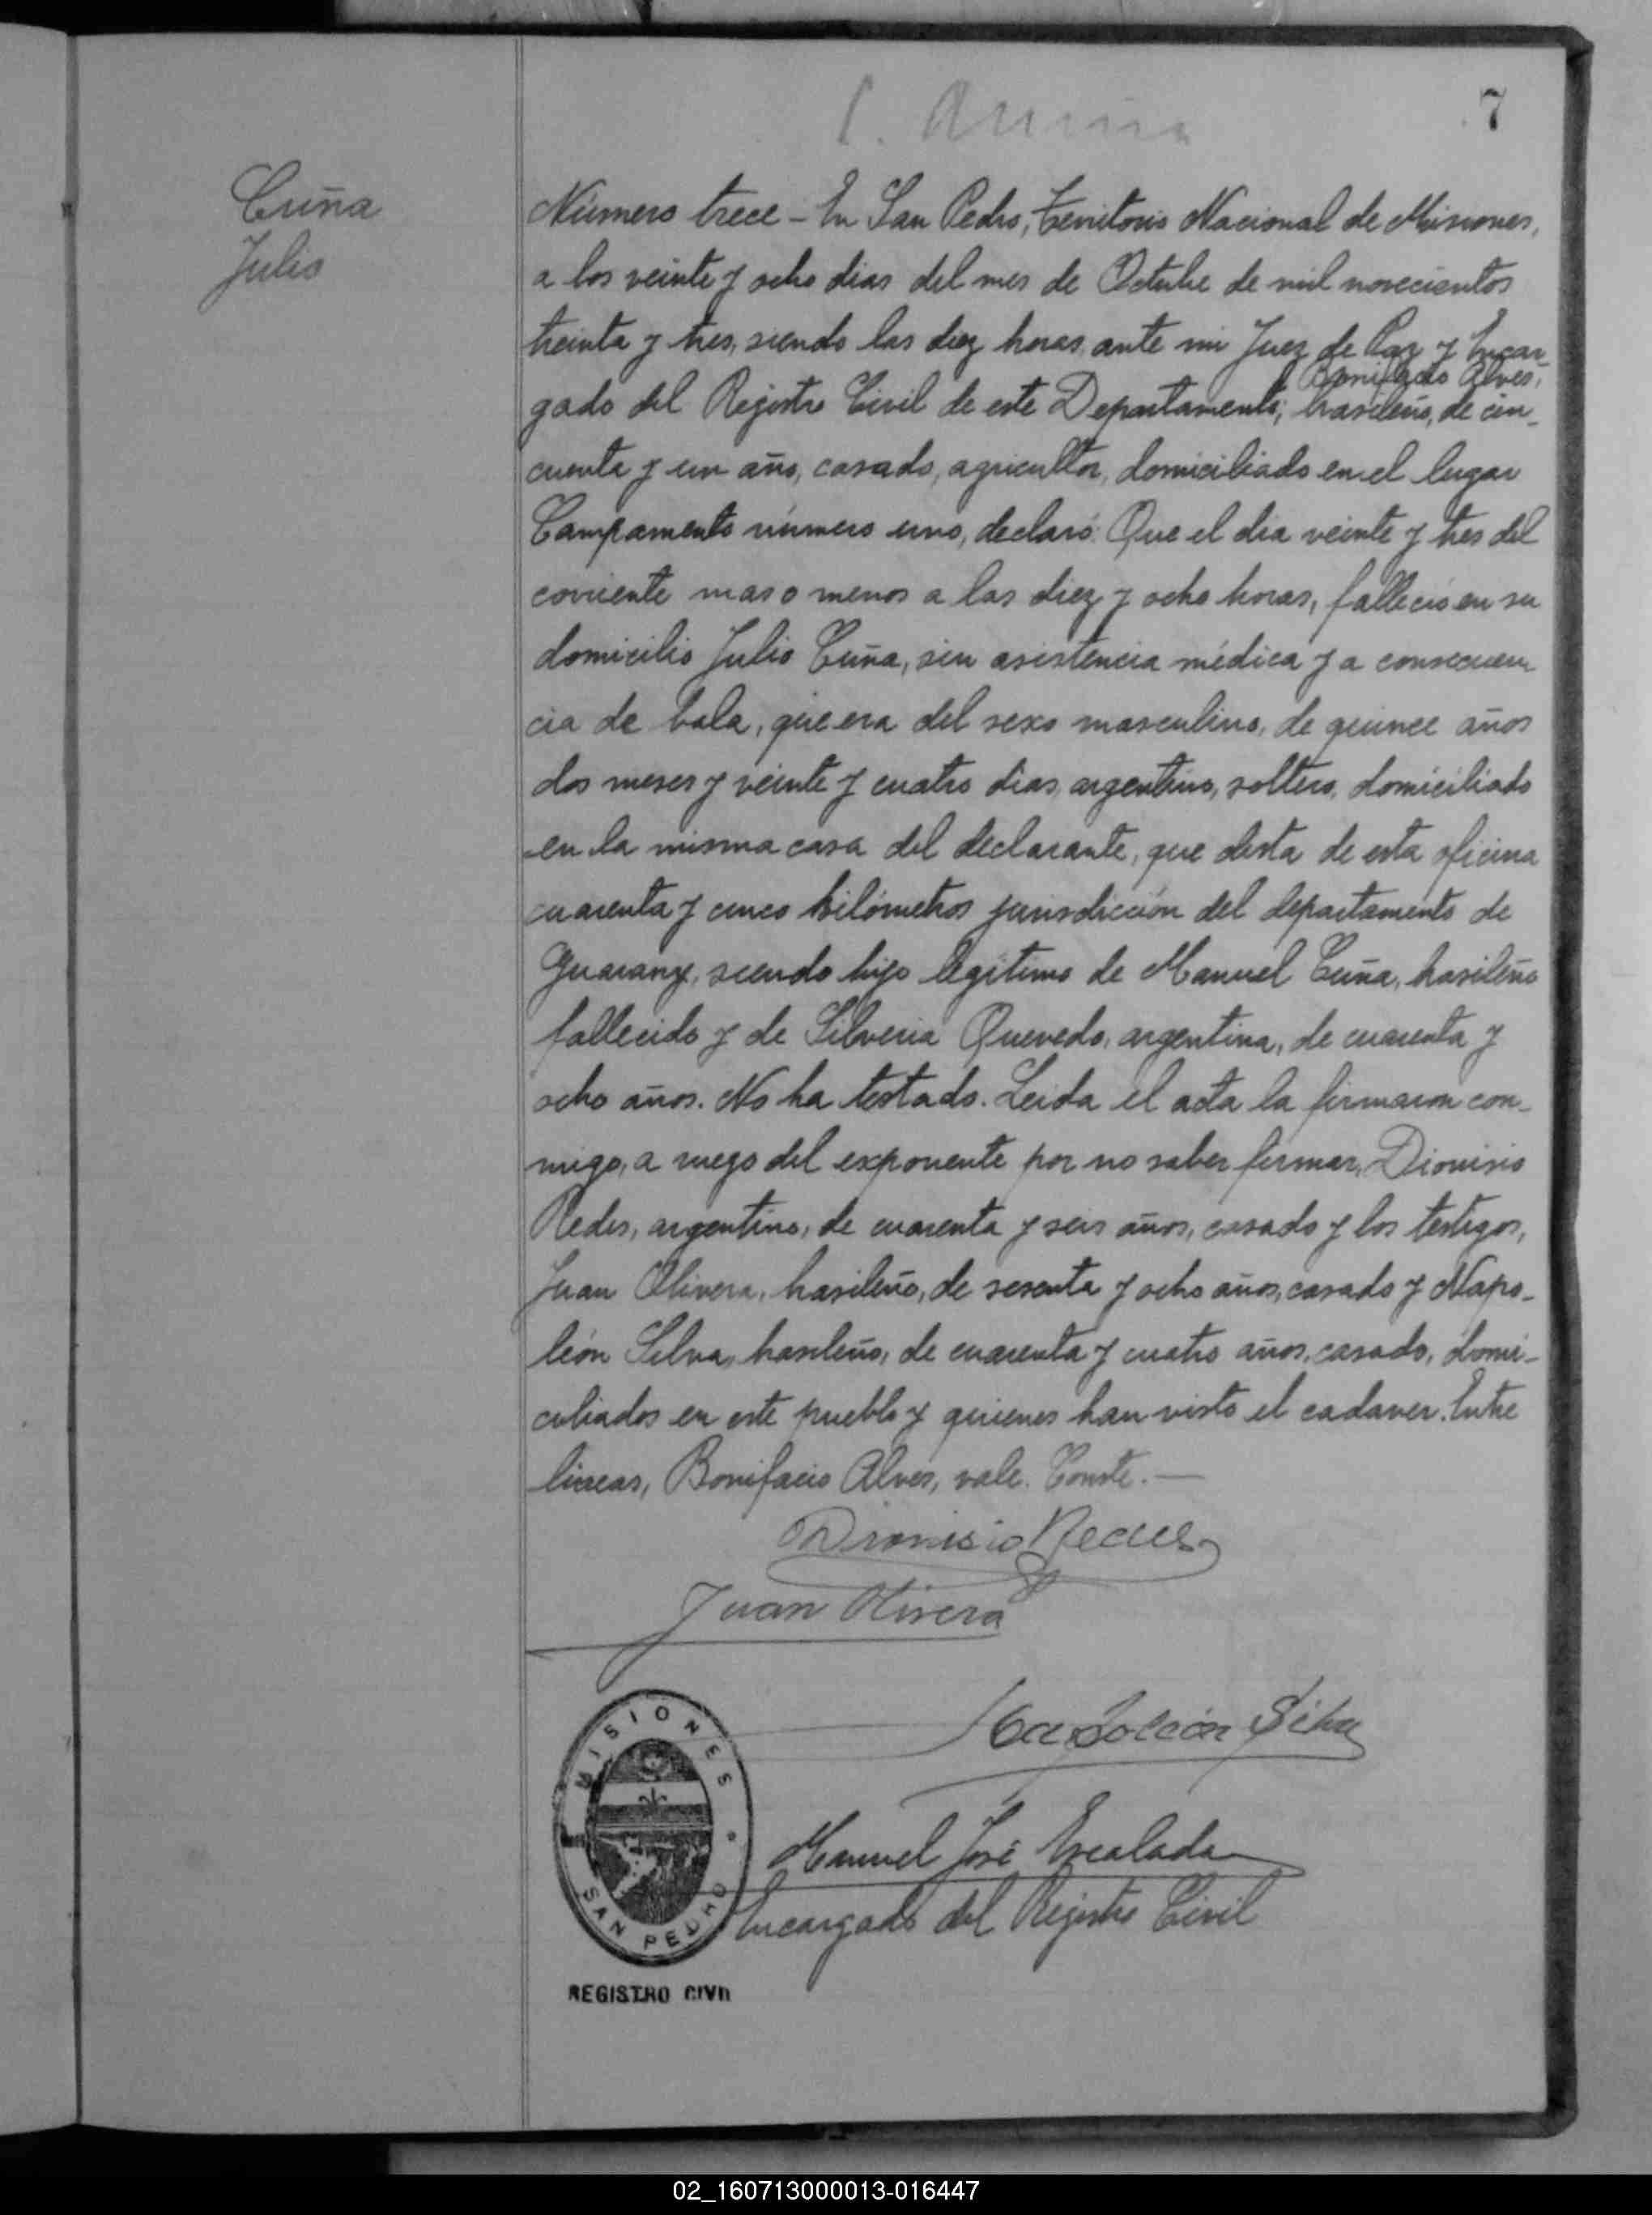 7
Cuña
Julio
Número trece - En San Pedro, Territorio Nacional de Misiones,
a los veinte y ocho dias del mes de Octubre de mil novecientos
treinta y tres, siendo las diez horas, ante mi Juez de Paz y Encar-
Bonifacio Alves,
gado del Registro Civil de este Departamento, brasileño, de cin-
cuenta y un año, casado, agricultor, domiciliado en el lugar
Campamento número uno, declaró: Que el dia veinte y tres del
corriente mas o menos a las diez y ocho horas, falleció en su
domicilio Julio Cuña, sin asistencia médica y a consecuen
cia de bala, que era del sexo masculino, de quince años
dos meses y veinte y cuatro dias, argentino, soltero, domiciliado
en la misma casa del declarante, que dista de esta oficina
cuarenta y cinco kilómetros jurisdicción del departamento de
Guarany, siendo hijo legítimo de Manuel Cuña, brasileño
fallecido y de Silveria Quevedo, argentina, de cuarenta y
ocho años. No ha testado. Leida el acta la firmaron con-
migo, a ruego del exponente por no saber firmar, Dionisio
Redes, argentino, de cuarenta y seis años, casado y los testigos,
Juan Olivera, brasileño, de sesenta y ocho años, casado y Napo-
león Silva, brasileño, de cuarenta y cuatro años, casado, domi-
ciliados en este pueblo y quienes han visto el cadaver. Entre
lineas, Bonifacio Alves, vale. Conste. —
Dionisio
Juan Olivera
Napoleón Silva
MISIONES
SAN PEDRO
Manuel José Escalada
Encargado del Registro Civil
REGISTRO CIVIL
02_160713000013-016447